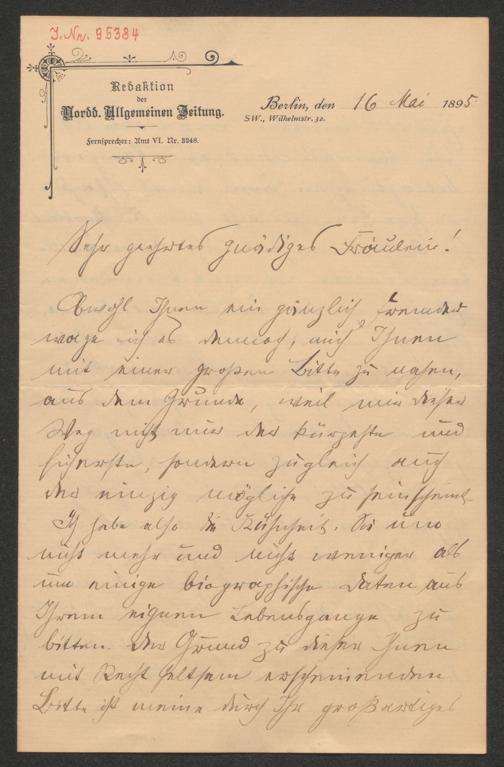 J. Nr. 95384
Redaktion
der
Nordd. Allgemeinen Zeitung.
Fernsprecher: Amt VI. Nr. 3248.
Berlin, den 16 Mai 1895.
SW., Wilhelmstr. 32.
Sehr geehrtes gnädiges Fräulein!
Obwohl Ihnen ein gänzlich Fremder
wage ich es dennoch, mich Ihnen
mit einer großen Bitte zu nahen,
aus dem Grunde, weil mir dieser
Weg nicht nur der kürzeste und
sicherste, sondern zugleich auch
der einzig mögliche zu sein scheint.
Ich habe also die Kühnheit, Sie um
nichts mehr und nichts weniger als
um einige biographische Daten aus
Ihrem eignen Lebensgange zu
bitten. Der Grund zu dieser Ihnen
mit Recht seltsam erscheinenden
Bitte ist meine durch Ihr großartiges